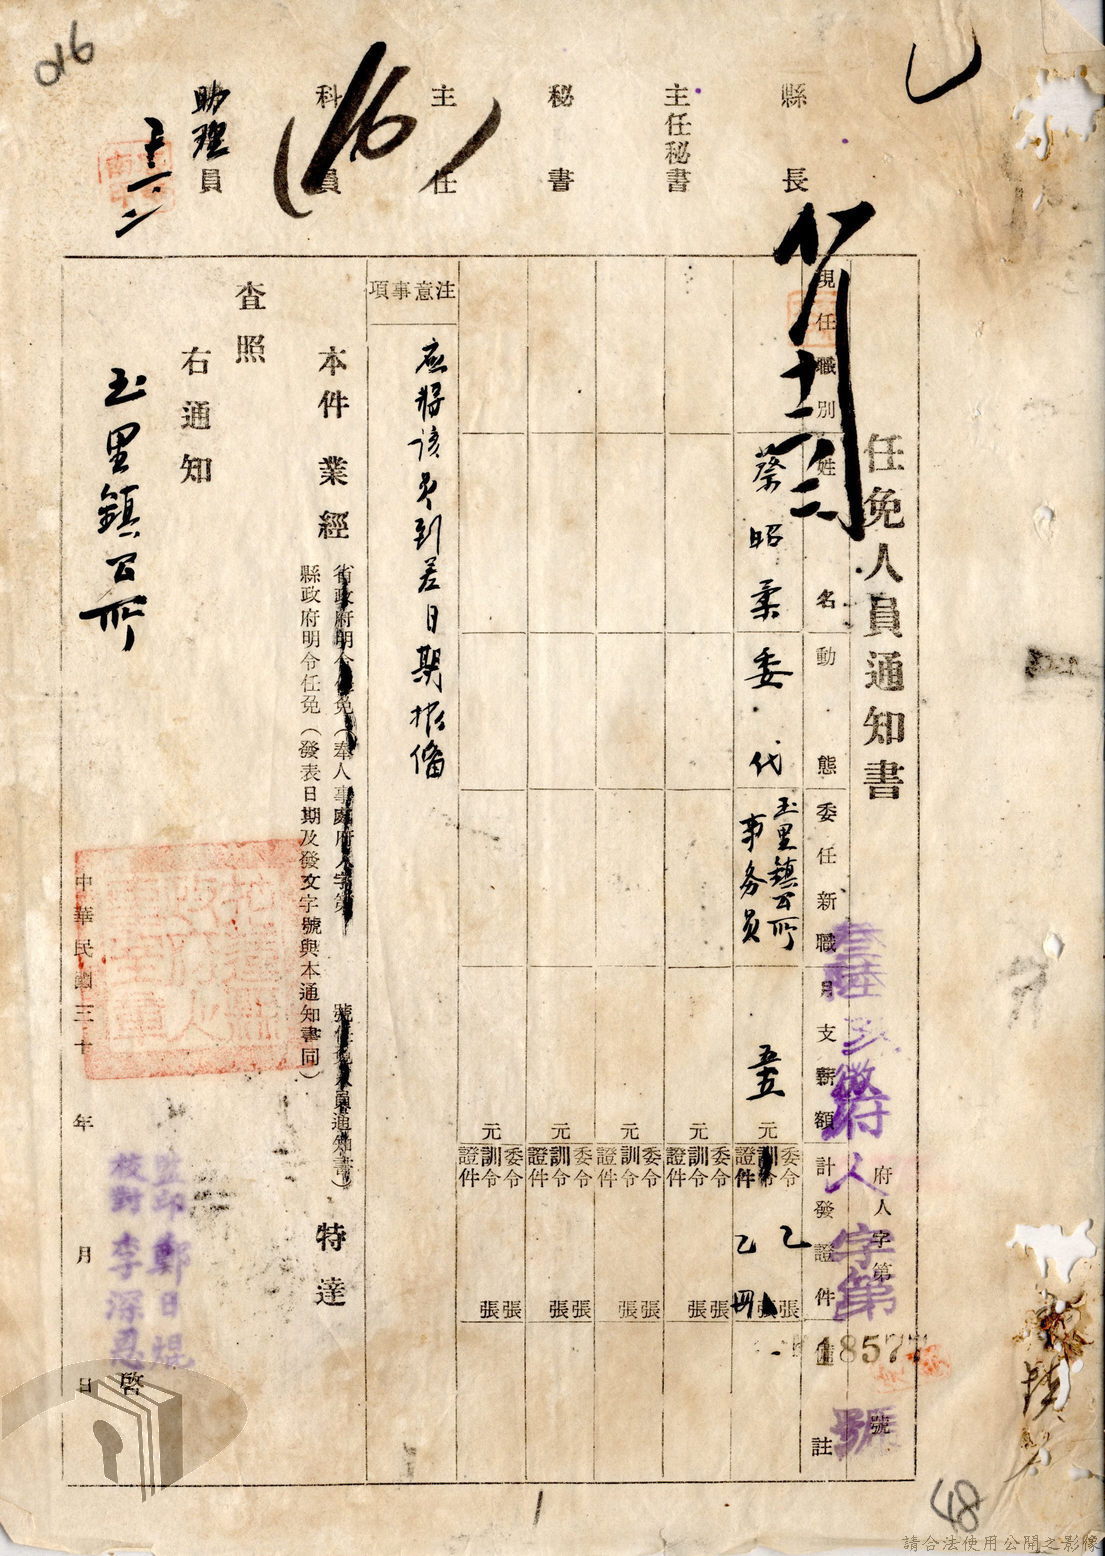 縣長
主任秘書
秘書
主任
科員
助理員
016
(16)
任免人員通知書
府人字第
號
府人字第
號
18577
現任職別
姓名
動態
委任新職
月支薪額
計發證件
備註
蔡昭
委代
玉里鎮公所
事務員
五五
元
委令
訓令
證件
乙
張
乙
張
元
委令
訓令
證件
張
張
元
委令
訓令
證件
張
張
元
委令
訓令
證件
張
張
元
委令
訓令
證件
張
張
注意事項
應將該員到差日期報備
本件業經
省政府明令任免(奉人事處府人字第 號任免人員通知書)
縣政府明令任免(發表日期及發文字號與本通知書同)
特達
查照
右通知
玉里鎮公所
監印鄭日焜
校對李深恩
啓
中華民國三十 年 月 日
48
1
請合法使用公開之影像